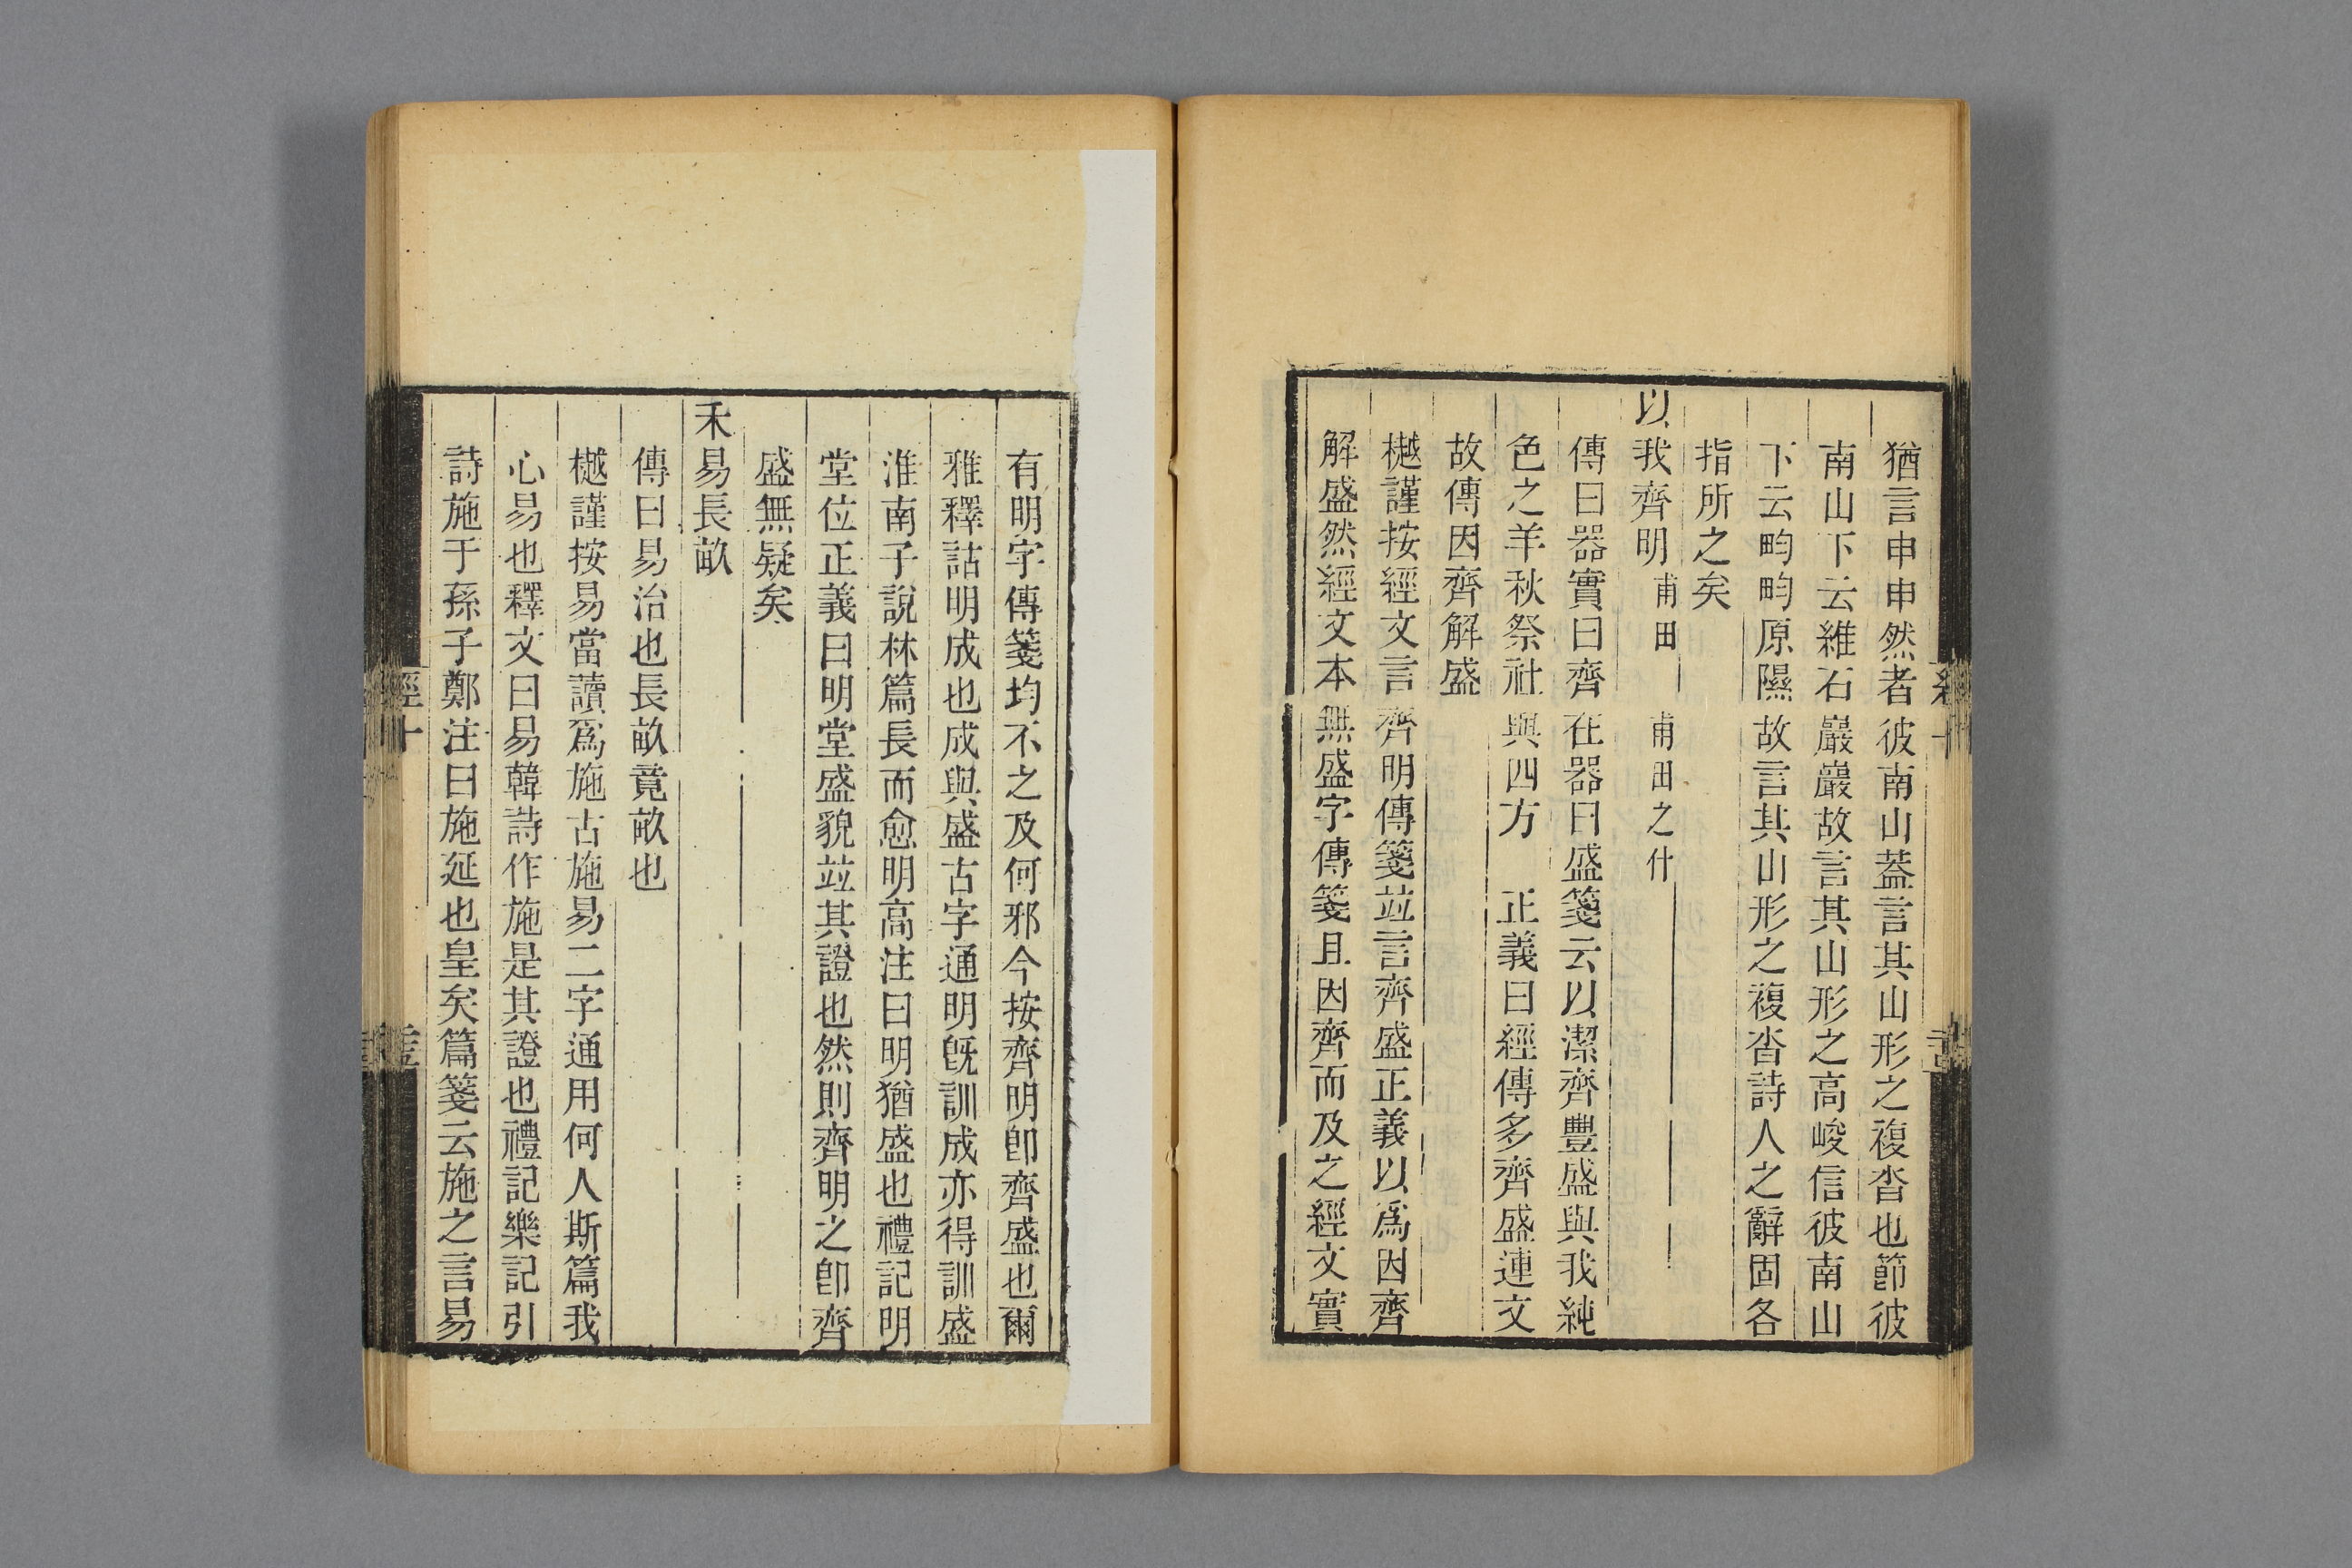 猶言申申然者彼南山蓋言其山形之複沓也節彼
南山下云維石巖巖故言其山形之高峻信彼南山
下云畇畇原隰故言其山形之複沓詩人之辭固各
指所之矣
以我齊明甫田 甫田之什
傳曰器實曰齊在器曰盛箋云以潔齊豐盛與我純
色之羊秋祭社與四方 正義曰經傳多齊盛連文
故傳因齊解盛
樾謹按經文言齊明傳箋竝言齊盛正義以爲因齊
解盛然經文本無盛字傳箋且因齊而及之經文實
有明字傳箋均不之及何邪今按齊明卽齊盛也爾
雅釋詁明成也成與盛古字通明旣訓成亦得訓盛
淮南子說林篇長而愈明高注曰明猶盛也禮記明
堂位正義曰明堂盛貌竝其證也然則齊明之卽齊
盛無疑矣
禾易長畝
傳曰易治也長畝竟畝也
樾謹按易當讀爲施古施易二字通用何人斯篇我
心易也釋文曰易韓詩作施是其證也禮記樂記引
詩施于孫子鄭注曰施延也皇矣篇箋云施之言易
經十